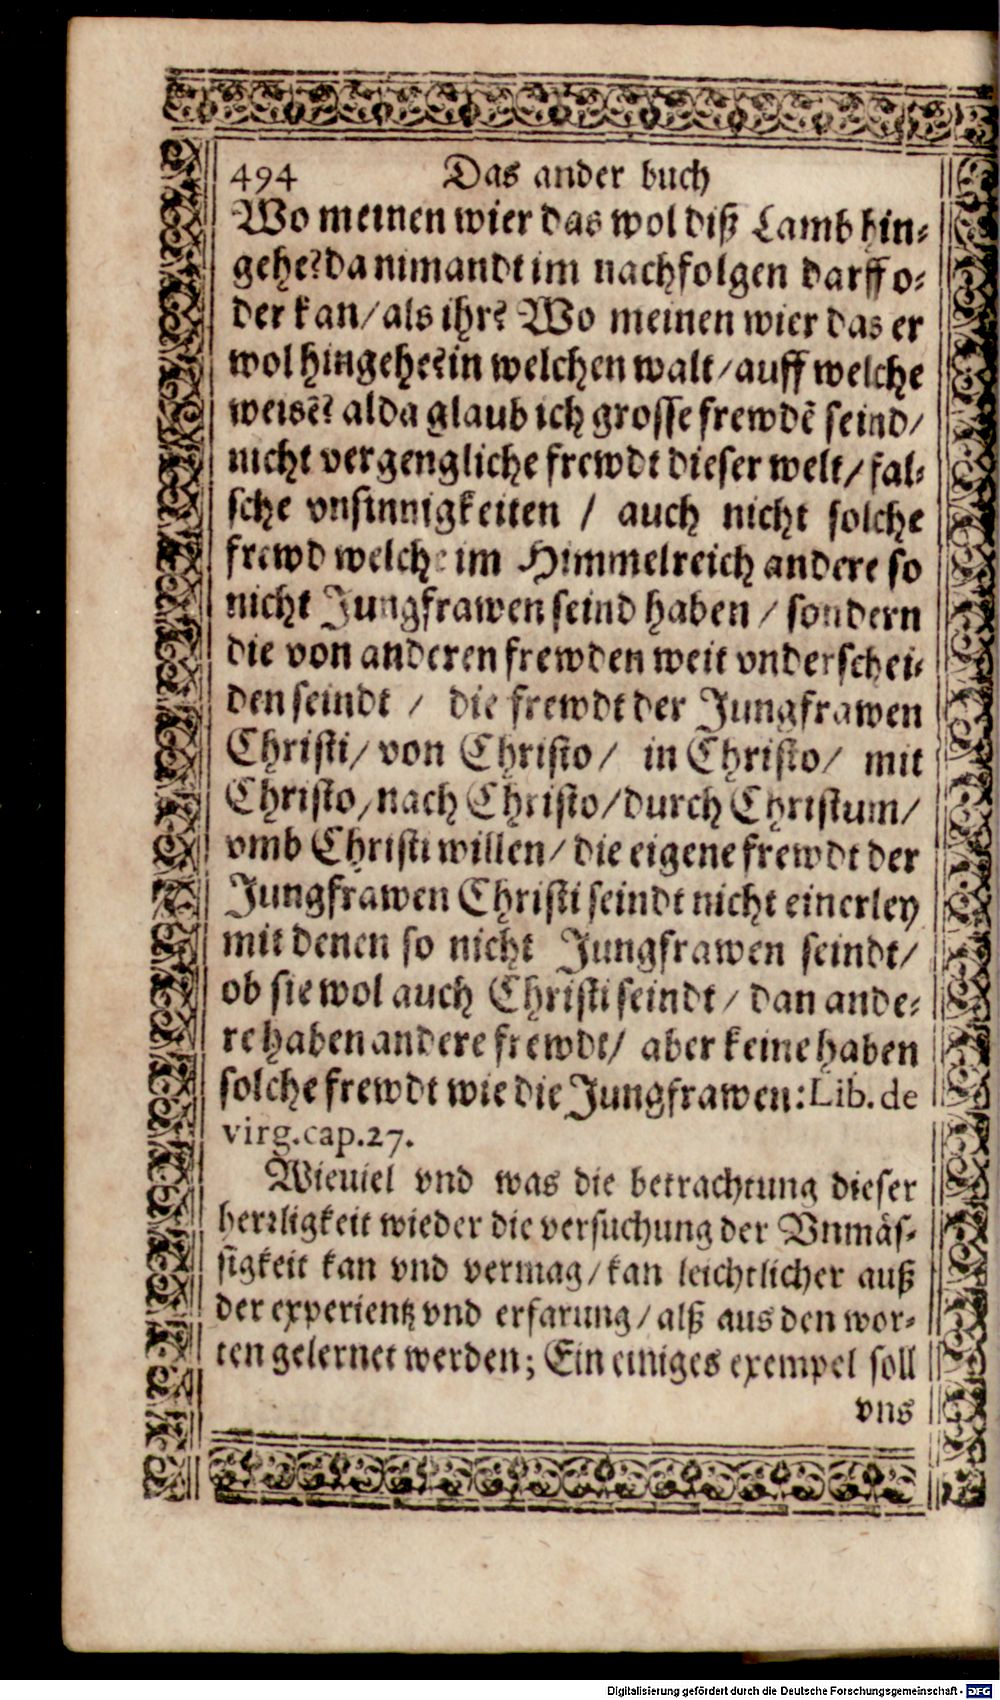 494 Das ander buch
Wo meinen wier das wol diß Lamb hin⸗
gehe? da nimandt im nachfolgen darff o⸗
der kan / als ihr? Wo meinen wier das er
wol hingehe? in welchen walt / auff welche
weisẽ? alda glaub ich grosse frewdẽ seind /
nicht vergengliche frewdt dieser welt / fal⸗
sche vnsinnigkeiten / auch nicht solche
frewd welche im Himmelreich andere so
nicht Jungfrawen seind haben / sondern
die von anderen frewden weit vnderschei⸗
den seindt / die frewdt der Jungfrawen
Christi / von Christo / in Christo / mit
Christo / nach Christo / durch Christum /
vmb Christi willen / die eigene frewdt der
Jungfrawen Christi seindt nicht einerley
mit denen so nicht Jungfrawen seindt /
ob sie wol auch Christi seindt / dan ande⸗
re haben andere frewdt / aber keine haben
solche frewdt wie die Jungfrawen: Lib. de
virg. cap. 27.
Wieuiel vnd was die betrachtung dieser
herꝛligkeit wieder die versuchung der Vnmäs⸗
sigkeit kan vnd vermag / kan leichtlicher auß
der experientz vnd erfarung / alß aus den wor⸗
ten gelernet werden; Ein einiges exempel soll
vns
Digitalisierung gefördert durch die Deutsche Forschungsgemeinschaft - DFG